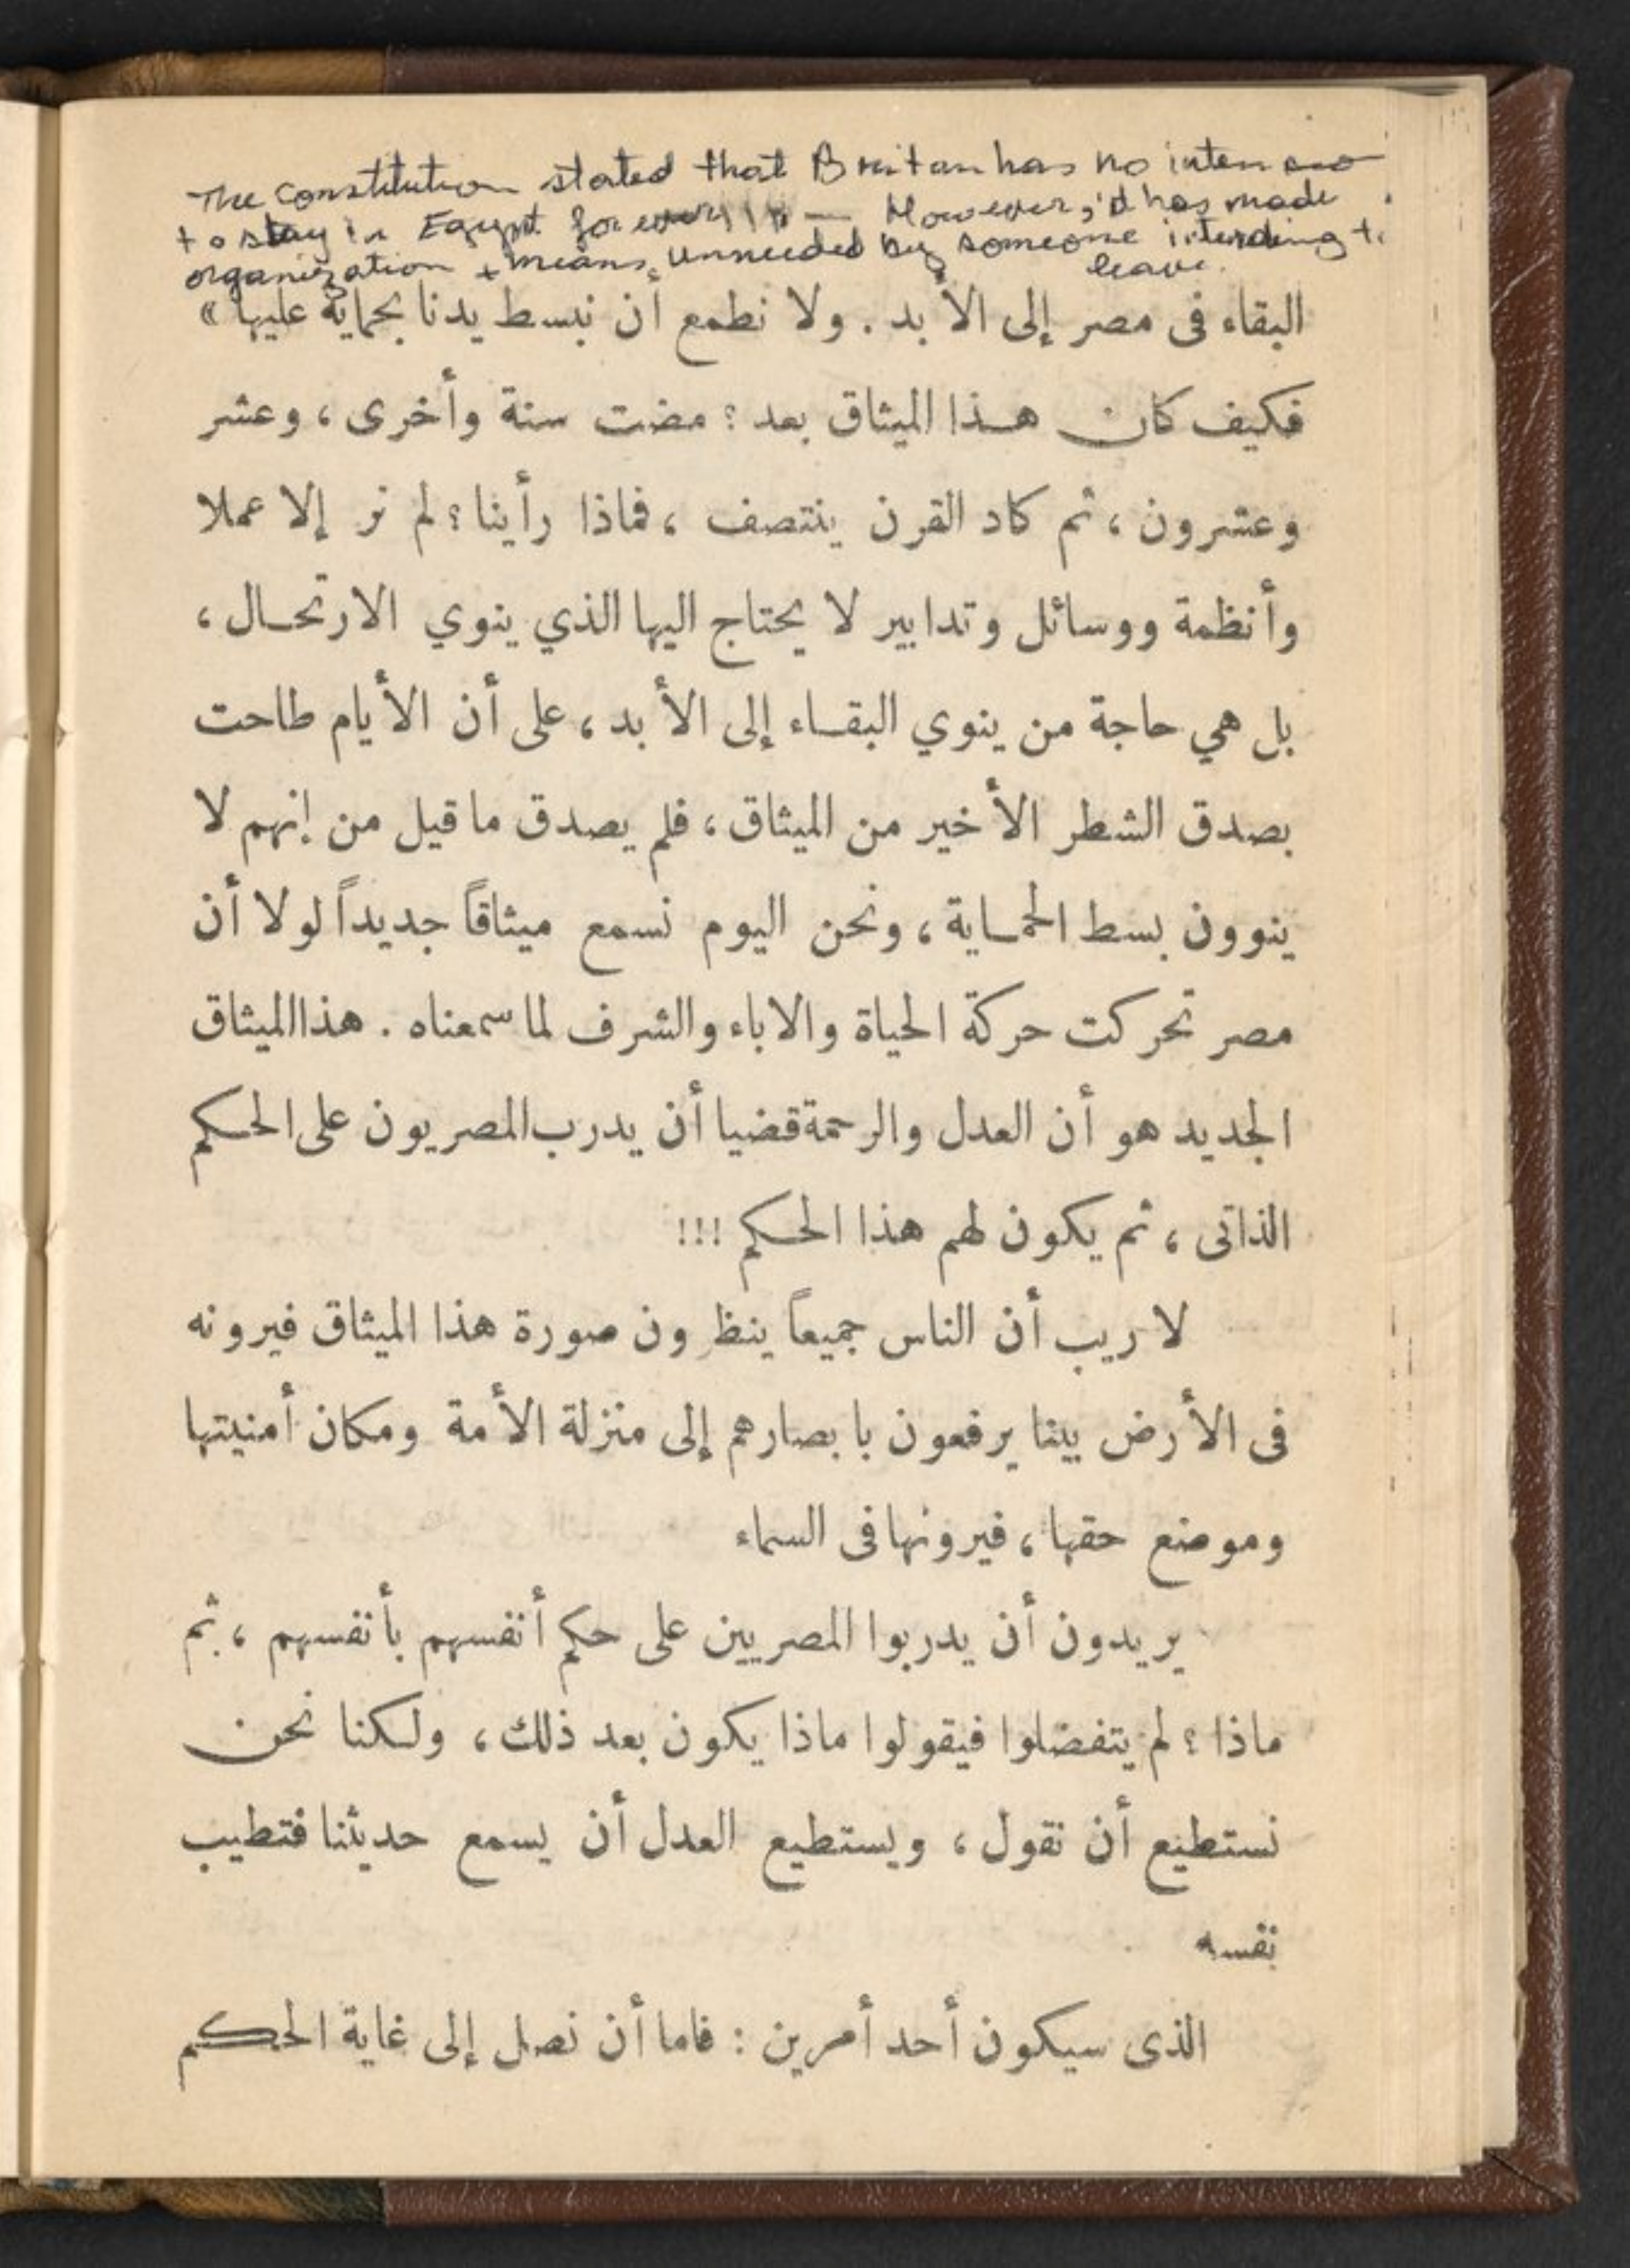 The constitution stated that Britan has no inten
to stay in Egypt for ever — However, it has made
organization + means, unneeded by someone intending to
leave.
البقاء فى مصر إلى الأبد . ولا نطمع أن نبسط يدنا بحماية عليها »
فكيف كان هذا الميثاق بعد ؟ مضت سنة وأخرى ، وعشر
وعشرون ، ثم كاد القرن ينتصف ، فماذا رأينا ؟ لم نر إلا عملا
وأنظمة ووسائل وتدابير لا يحتاج اليها الذي ينوي الارتحال ،
بل هي حاجة من ينوي البقاء إلى الأبد ، على أن الأيام طاحت
بصدق الشطر الأخير من الميثاق ، فلم يصدق ما قيل من إنهم لا
ينوون بسط الحماية ، ونحن اليوم نسمع ميثاقاً جديداً لولا أن
مصر تحركت حركة الحياة والاباء والشرف لما سمعناه . هذا الميثاق
الجديد هو أن العدل والرحمة قضيا أن يدرب المصريون على الحكم
الذاتى ، ثم يكون لهم هذا الحكم !!!
لا ريب أن الناس جميعاً ينظرون صورة هذا الميثاق فيرونه
فى الأرض بينا يرفعون بابصارهم إلى منزلة الأمة ومكان أمنيتها
وموضع حقها ، فيرونها فى السماء
يريدون أن يدربوا المصريين على حكم أنفسهم بأنفسهم ، ثم
ماذا ؟ لم يتفضلوا فيقولوا ماذا يكون بعد ذلك ، ولكنا نحن
نستطيع أن نقول ، ويستطيع العدل أن يسمع حديثنا فتطيب
نفسه
الذى سيكون أحد أمرين : فاما أن نصل إلى غاية الحكم